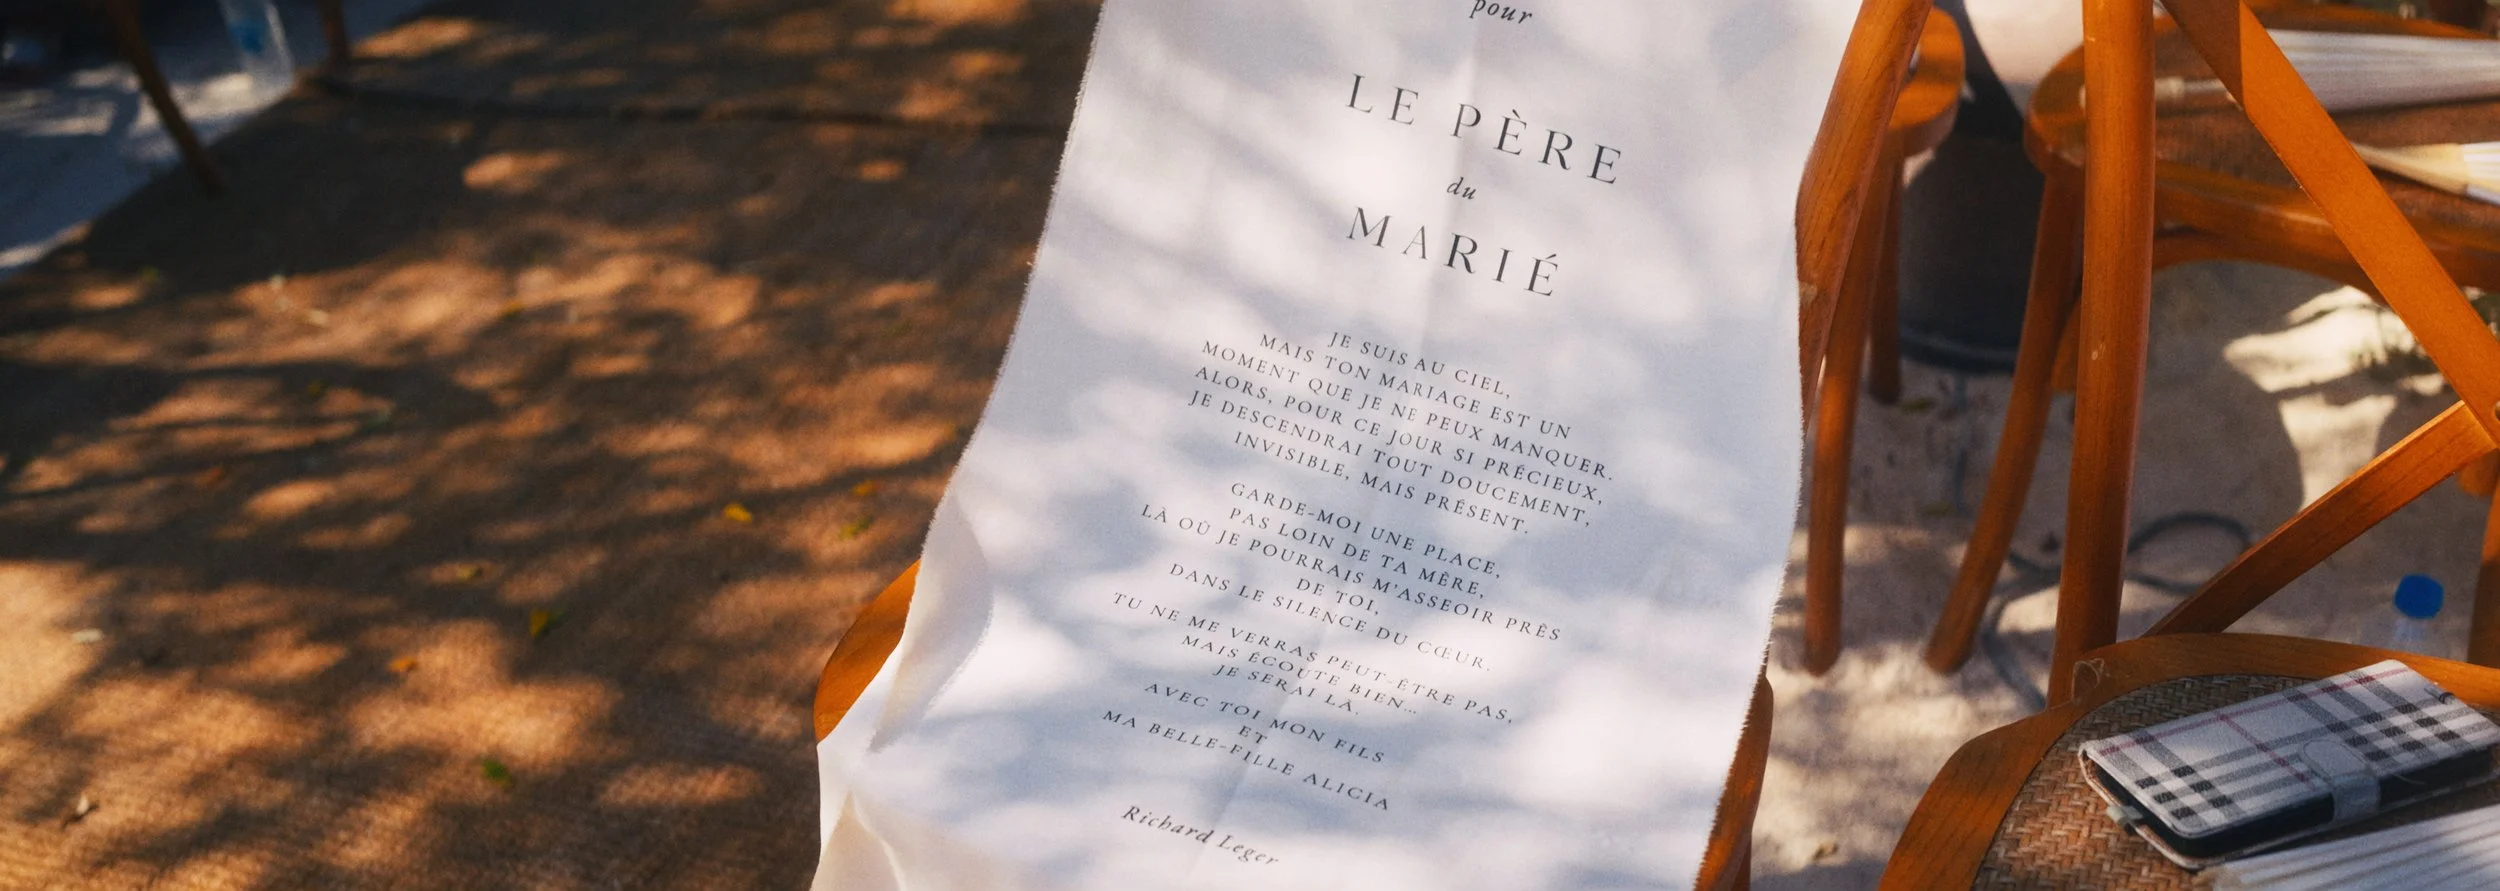 pour
LE PÈRE
du
MARIÉ
JE SUIS AU CIEL,
MAIS TON MARIAGE EST UN
MOMENT QUE JE NE PEUX MANQUER.
ALORS, POUR CE JOUR SI PRÉCIEUX,
JE DESCENDRAI TOUT DOUCEMENT,
INVISIBLE, MAIS PRÉSENT.
GARDE-MOI UNE PLACE,
PAS LOIN DE TA MÈRE,
LÀ OÙ JE POURRAIS M'ASSEOIR PRÈS
DE TOI,
DANS LE SILENCE DU CŒUR.
TU NE ME VERRAS PEUT-ÊTRE PAS,
MAIS ÉCOUTE BIEN...
JE SERAI LÀ.
AVEC TOI MON FILS
ET
MA BELLE-FILLE ALICIA
Richard Leger